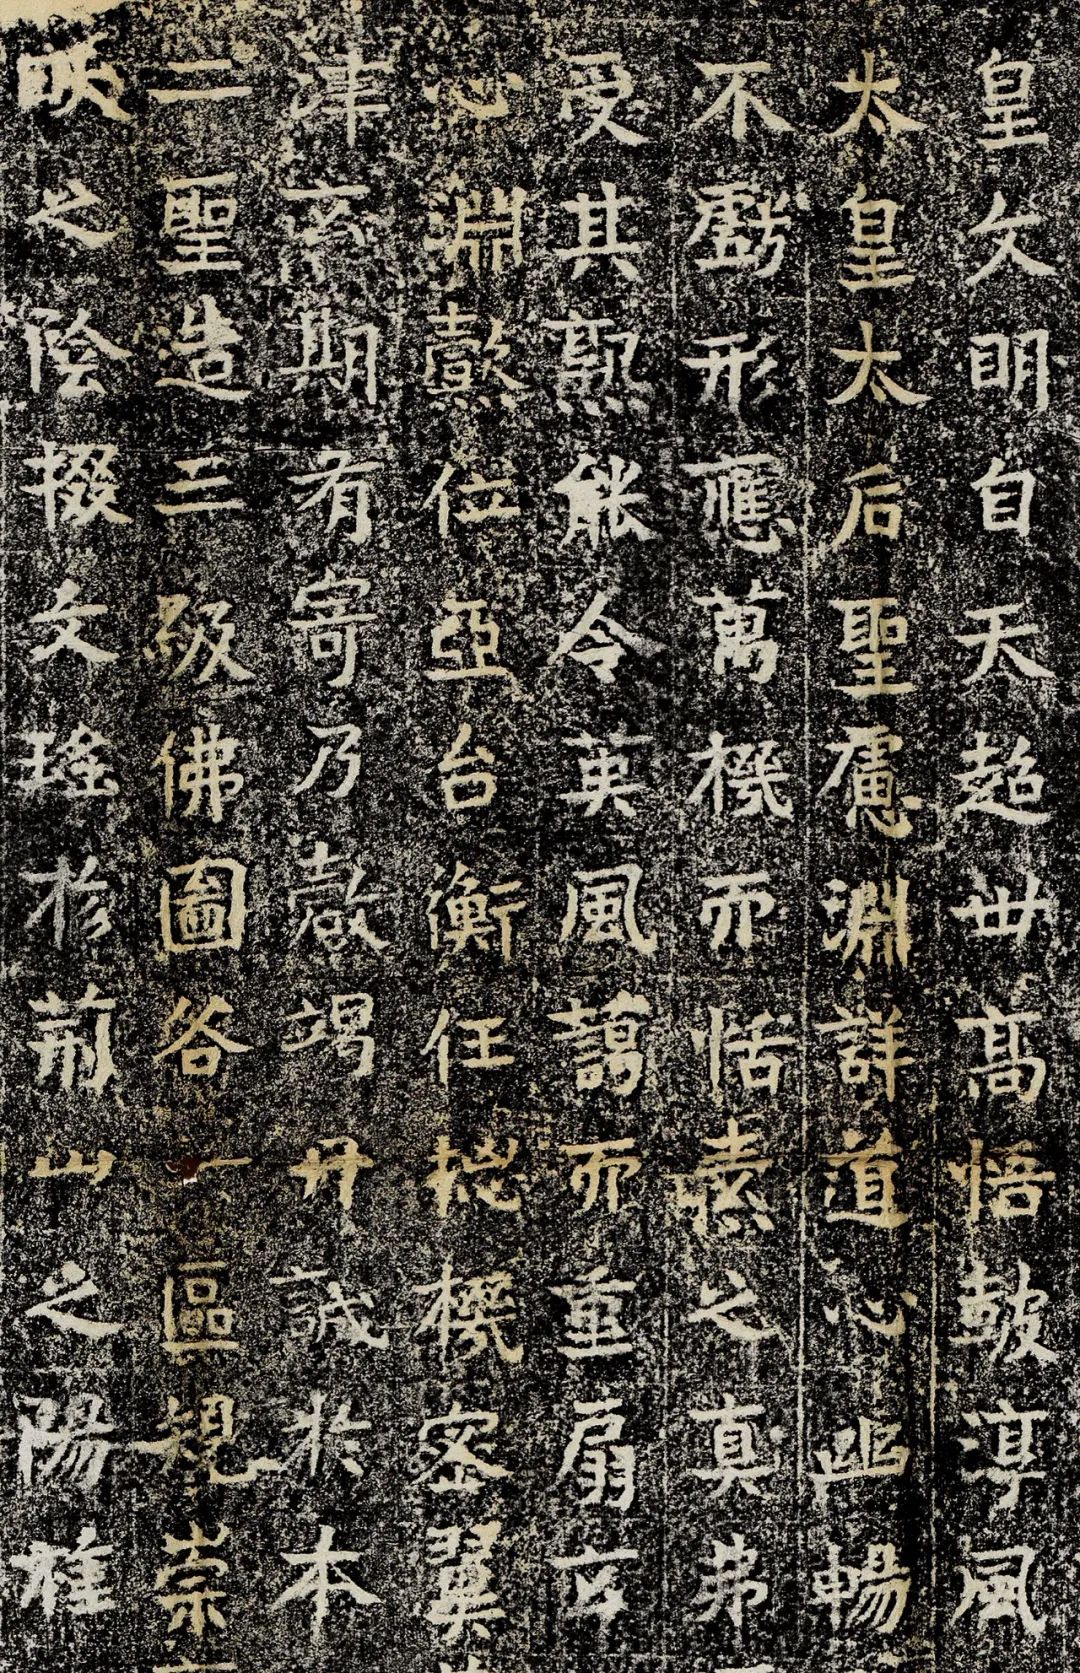 皇文明自天超世高悟鼓淳風
太皇太后聖慮淵詳道心幽暢
不虧形應萬機而恬素之真弗
受其熟能令英風藹而重扇玄
心淵懿位亞台衡任揔機密翼
津玄期有寄乃罄竭丹誠於本
二聖造三級佛圖各一區規崇
映之陰掇文瑤於荊山之陽旌